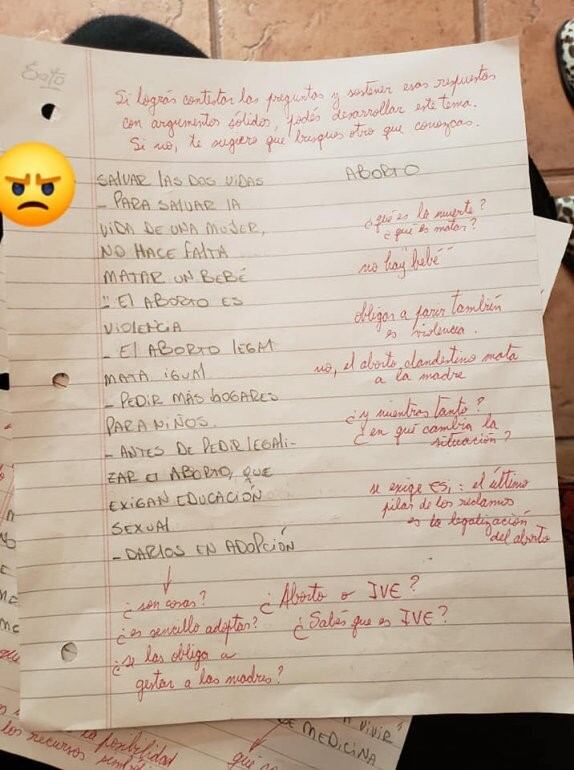 Si lográs contestar las preguntas y sostener esas respuestas
con argumentos sólidos, podés desarrollar este tema.
Si no, te sugiero que busques otro que conozcas.
SALVAR LAS DOS VIDAS
- PARA SALVAR LA
VIDA DE UNA MUJER,
NO HACE FALTA
MATAR UN BEBÉ
- El ABORTO ES
VIOLENCIA
- El ABORTO LEGAL
MATA IGUAL
- PEDIR MÁS HOGARES
PARA NIÑOS.
- ANTES DE PEDIR LEGALI-
ZAR El ABORTO, QUE
EXIGAN EDUCACIÓN
SEXUAL
- DARLOS EN ADOPCIÓN
ABORTO
¿qué es la muerte?
¿qué es matar?
no hay "bebé"
obligar a parir también
es violencia.
no, el aborto clandestino mata
a la madre
¿y mientras tanto?
¿en qué cambia la
situación?
se exige ESI: el último
pilar de los reclamos
es la legalización
del aborto
¿son cosas?
¿es sencillo adoptar?
¿se las obliga a
gestar a las madres?
¿Aborto o IVE?
¿Sabés que es IVE?
la posibilidad
los recursos
VIVIR
DE MEDICINA